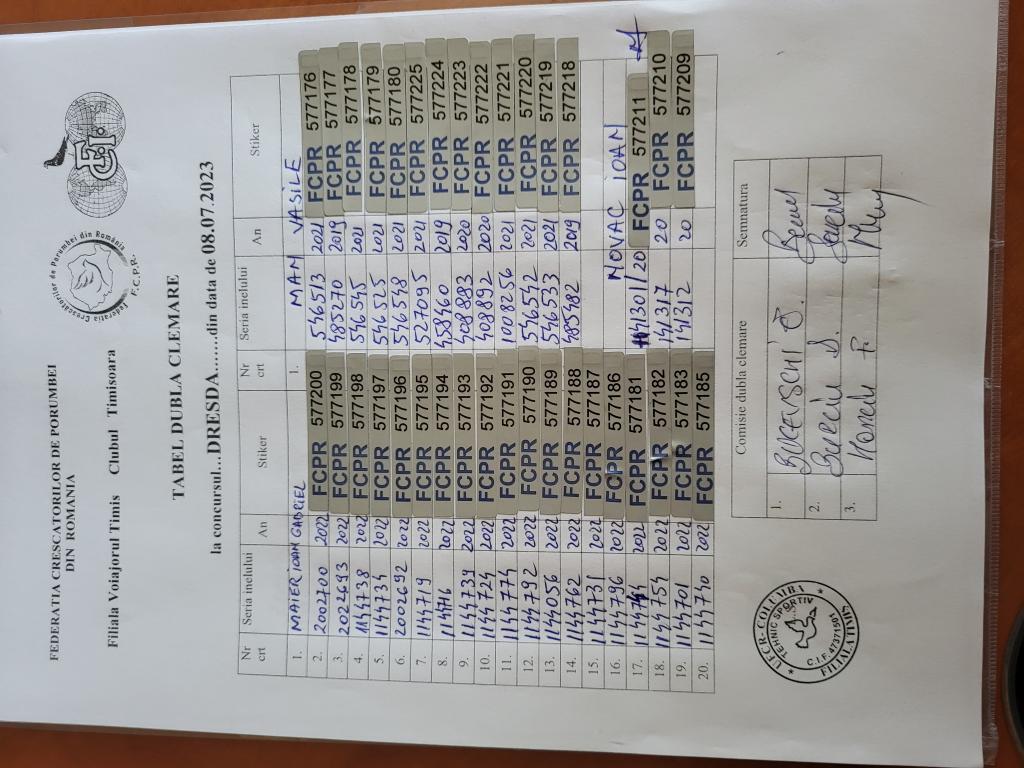 FEDERATIA CRESCATORILOR DE PORUMBEI
DIN ROMANIA
Filiala Voiajorul Timis Clubul Timisoara
Federatia Crescatorilor de Porumbei din România
F.C.P.R.
FCI
TABEL DUBLA CLEMARE
la concursul...DRESDA.......din data de 08.07.2023
Nr crt Seria inelului An Stiker Nr crt Seria inelului An Stiker
1. MATER IOAN GABRIEL 1. MAN VASILE
2. 2002700 2022 FCPR 577200 546513 2021 FCPR 577176
3. 2022693 2022 FCPR 577199 485270 2019 FCPR 577177
4. 1144738 2022 FCPR 577198 546545 2021 FCPR 577178
5. 1144734 2022 FCPR 577197 546525 2021 FCPR 577179
6. 2002692 2022 FCPR 577196 546548 2021 FCPR 577180
7. 1144719 2022 FCPR 577195 527095 2021 FCPR 577225
8. 2022 FCPR 577194 458460 2019 FCPR 577224
9. 1144739 2022 FCPR 577193 408883 2020 FCPR 577223
10. 1144724 2022 FCPR 577192 408892 2020 FCPR 577222
11. 1144774 2022 FCPR 577191 1008256 2021 FCPR 577221
12. 1144792 2022 FCPR 577190 546542 2021 FCPR 577220
13. 1144056 2022 FCPR 577189 546533 2021 FCPR 577219
14. 1144762 2022 FCPR 577188 485482 2019 FCPR 577218
15. 1144731 2022 FCPR 577187
16. 1144796 2022 FCPR 577186 NOVAC IOAN
17. 2022 FCPR 577181 141301/20 FCPR 577211
18. 1144754 2022 FCPR 577182 141317 20 FCPR 577210
19. 1144701 2022 FCPR 577183 141312 20 FCPR 577209
20. 1144740 2022 FCPR 577185
Comisie dubla clemare Semnatura
1.
2.
3.
UFCR-COLUMBA
TEHNIC SPORTIV
C.I.F. 47371507
FILIALA TIMIS